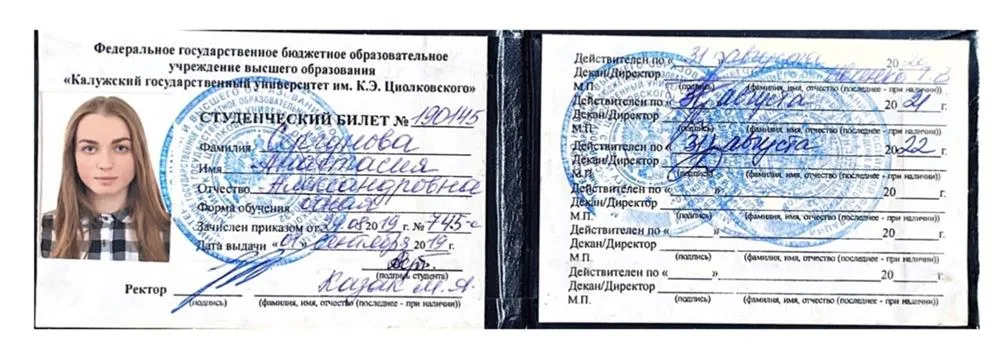 Федеральное государственное бюджетное образовательное
учреждение высшего образования
«Калужский государственный университет им. К.Э. Циолковского»
СТУДЕНЧЕСКИЙ БИЛЕТ № 190145
Фамилия
Имя Анастасия
Отчество Александровна
Форма обучения очная
Зачислен приказом от 29.08 2019 г. № 745-с
Дата выдачи «01» сентября 2019 г.
(подпись студента)
Ректор Казак М.А
(подпись) (фамилия, имя, отчество (последнее - при наличии))
Действителен по « 31 августа 20
Декан/Директор
М.П. (подпись) (фамилия, имя, отчество (последнее - при наличии))
Действителен по « 31 » августа 20 21 г.
Декан/Директор
М.П. (подпись) (фамилия, имя, отчество (последнее - при наличии))
Действителен по « 31 » августа 20 22 г.
Декан/Директор
М.П. (подпись) (фамилия, имя, отчество (последнее - при наличии))
Действителен по « » 20 г.
Декан/Директор
М.П. (подпись) (фамилия, имя, отчество (последнее - при наличии))
Действителен по « » 20 г.
Декан/Директор
М.П. (подпись) (фамилия, имя, отчество (последнее - при наличии))
Действителен по « » 20 г.
Декан/Директор
М.П. (подпись) (фамилия, имя, отчество (последнее - при наличии))